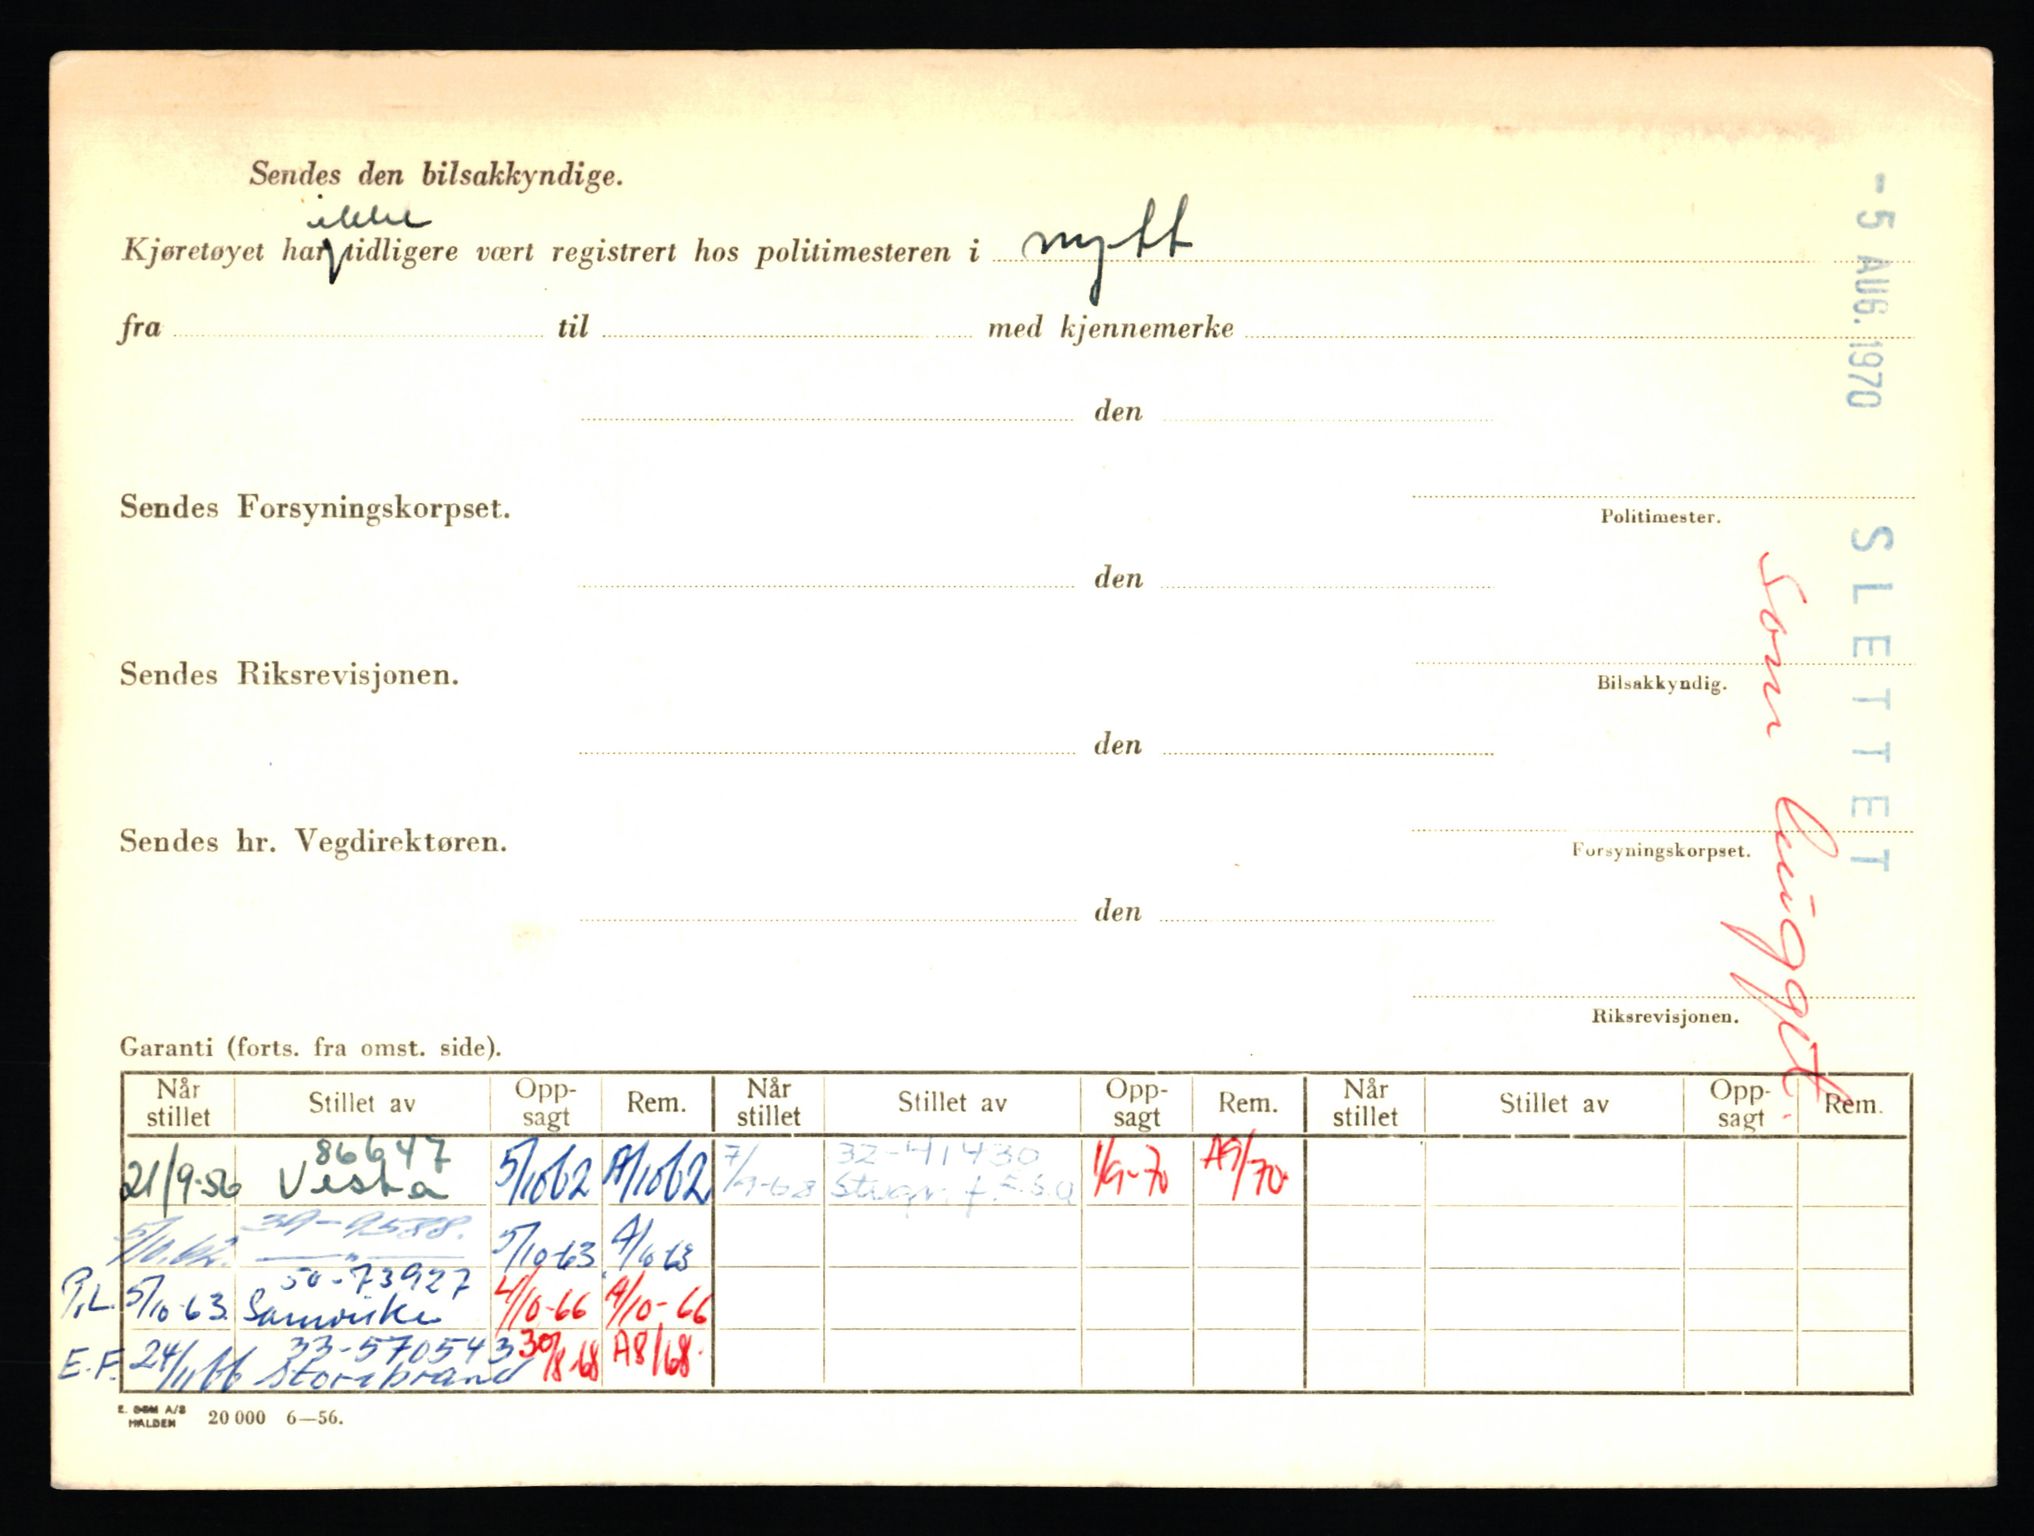 Sendes den bilsakkyndige.
ikke
Kjøretøyet har tidligere vært registrert hos politimesteren i nytt
fra til med kjennemerke
den
Sendes Forsyningskorpset.
Politimester.
den
Sendes Riksrevisjonen.
Bilsakkyndig.
den
Sendes hr. Vegdirektøren.
Forsyningskorpset.
den
Riksrevisjonen.
- 5 AUG. 1970 SLETTET
Som
Garanti (forts. fra omst. side).
Når stillet Stillet av Opp- sagt Rem. Når stillet Stillet av Opp- sagt Rem. Når stillet Stillet av Opp- sagt Rem.
21/9-56 86647 Vesta 5/10 62 A/10 62 7/9-68 32-41430 1/9-70 A9/70.
5/10.62. 39-9588. —"— 5/10-63 A/10-63
P.L. 5/10-63 50-73927 Samvirke 4/10-66 A/10-66
E.F. 24/11 66 33-570543 Storebrand 30/8-68 A8/68.
E. SEM A/S
HALDEN 20 000 6—56.